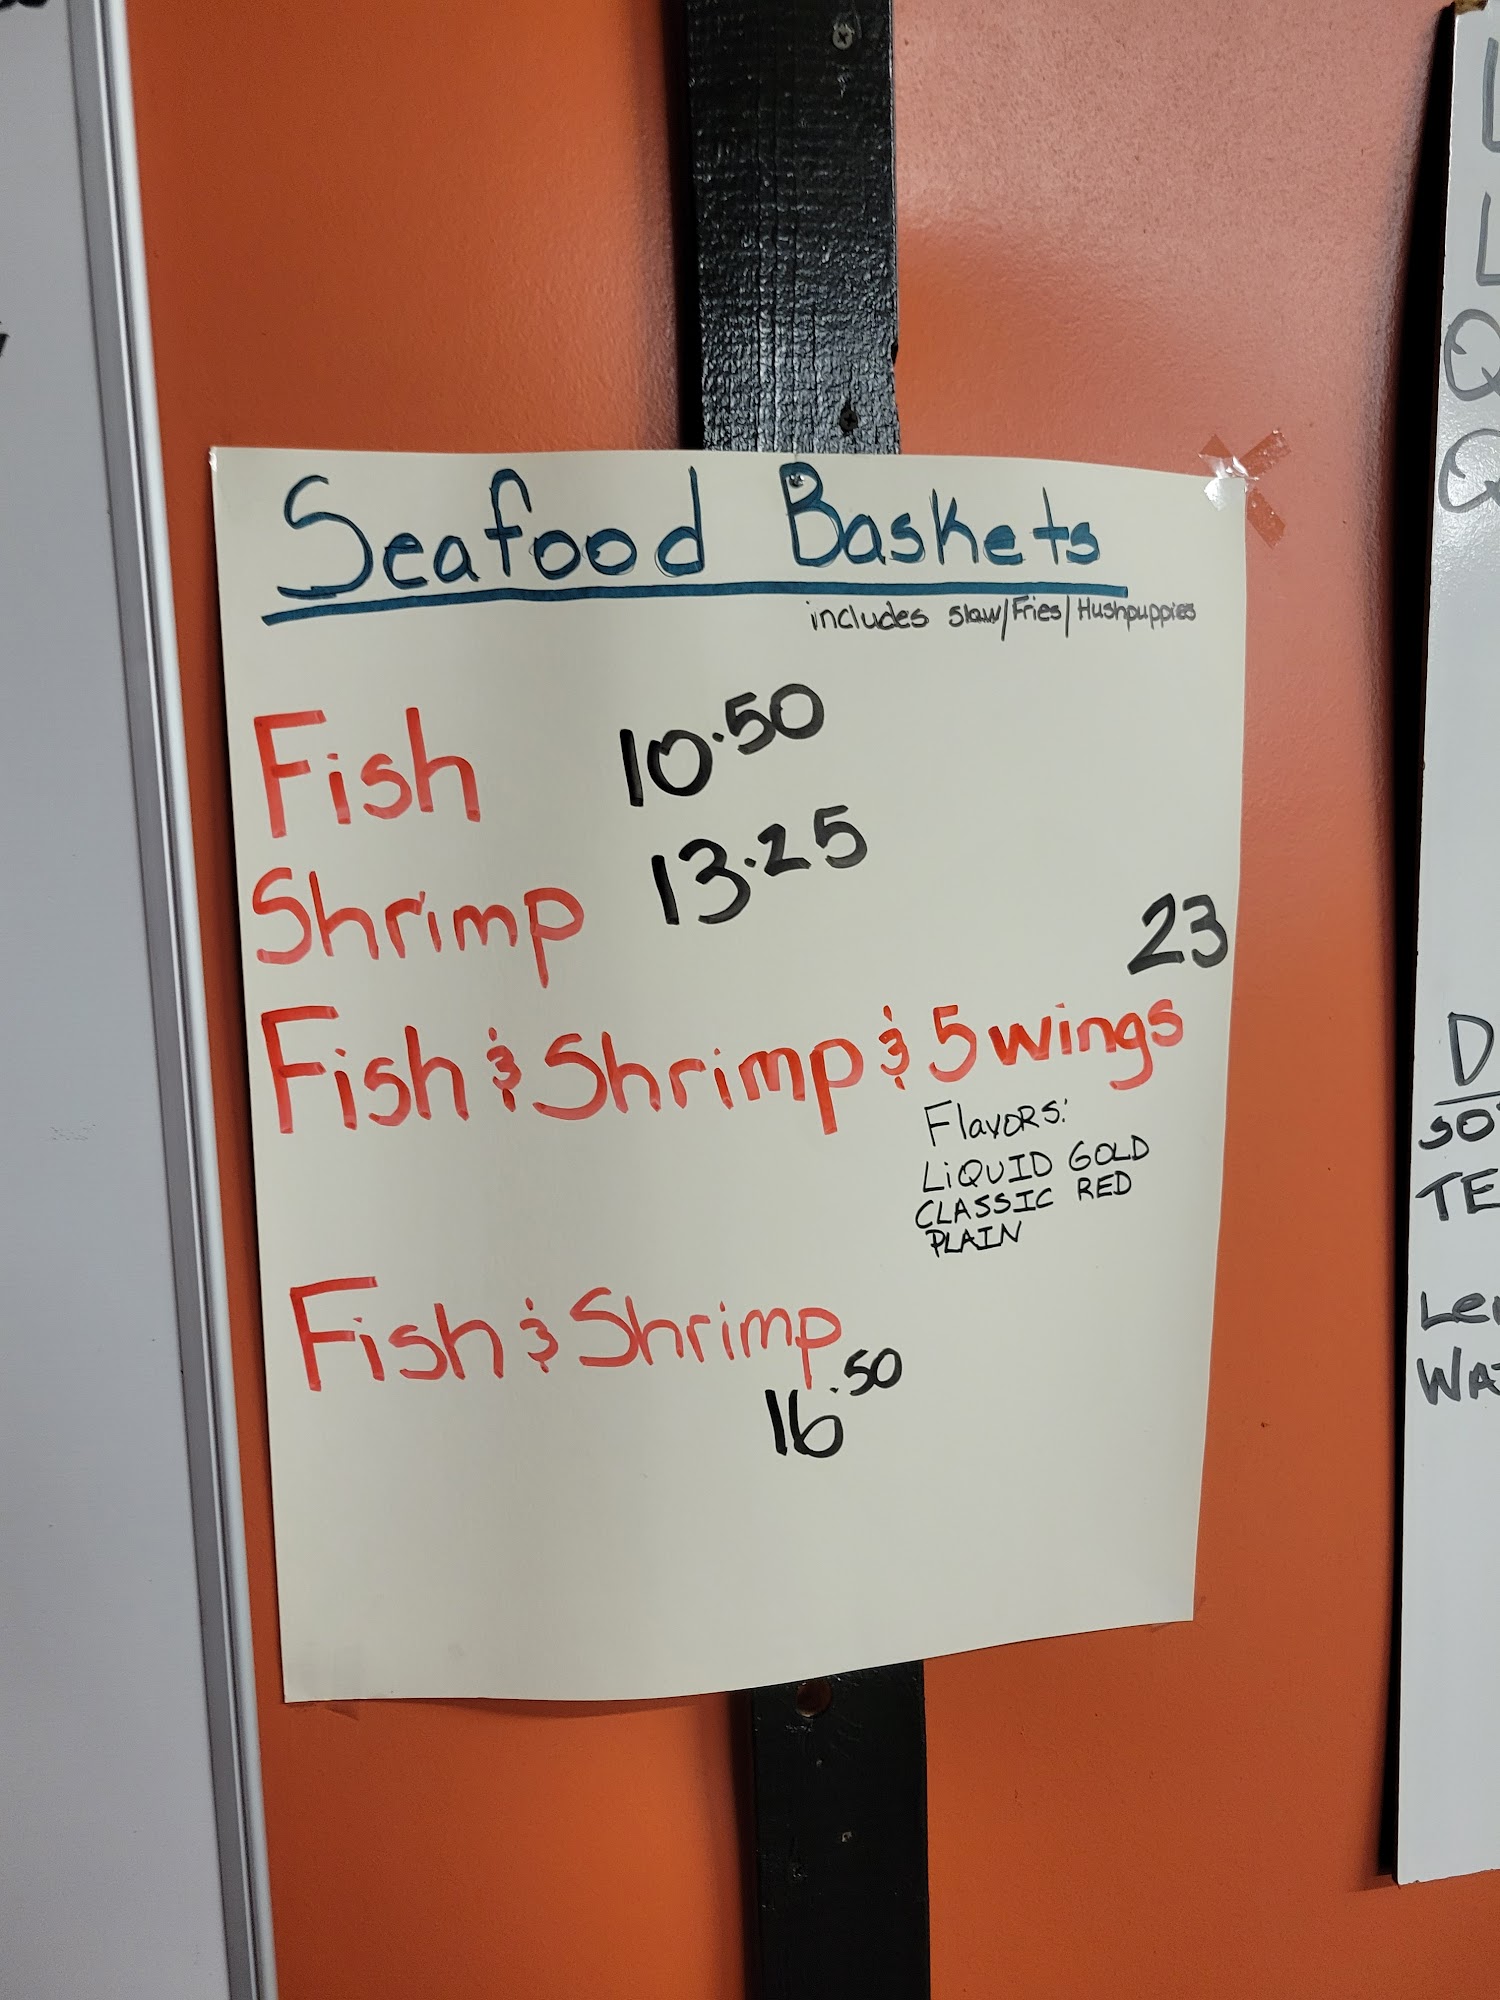 Seafood Baskets
includes Slaw/Fries/Hushpuppies
Fish 10.50
Shrimp 13.25
23
Fish & Shrimp & 5 wings
Flavors:
LiQUID GOLD
CLASSIC RED
PLAIN
Fish & Shrimp
16.50